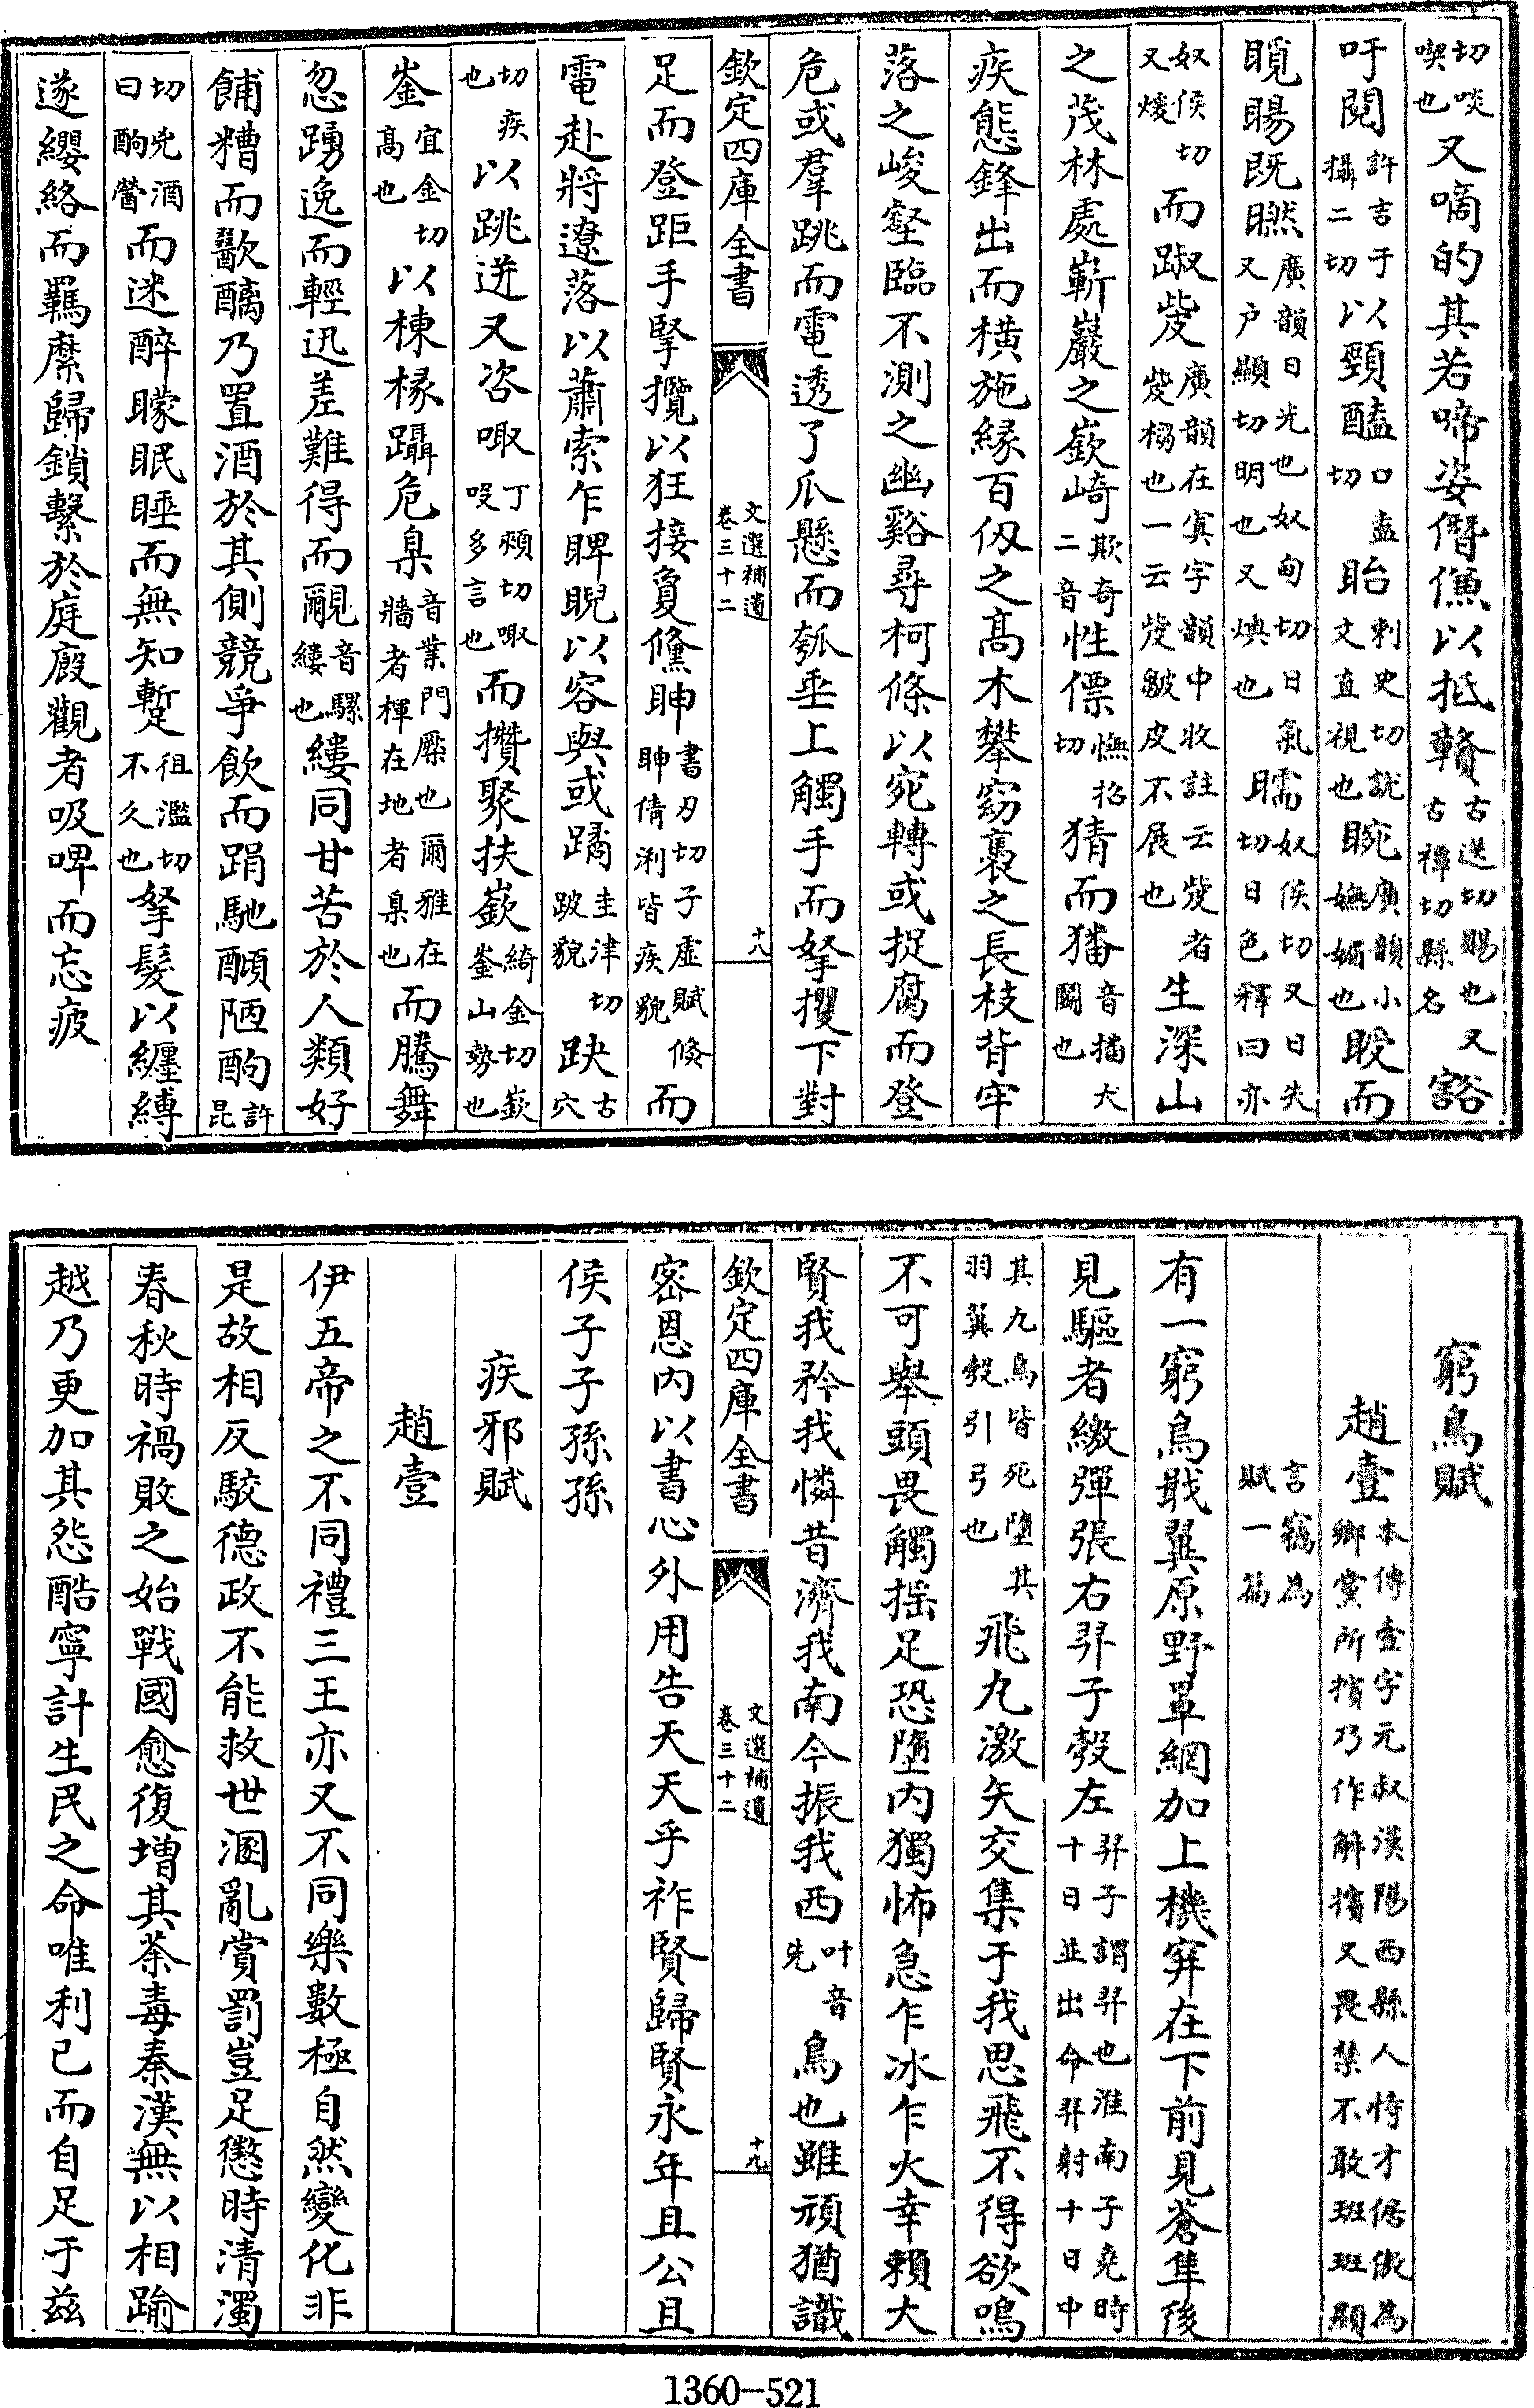 切啖喫也又嘀的其若啼姿僭以抵贛古送切賜也又古禫切縣名豁
吁閱許吉于攝二切以頸醘口盍切眙刺史切說文直視也睕廣韻小嫵媚也而
睗既廣韻日光也奴甸切日氣又户顯切明也又煗也奴侯切又日失切日色釋曰亦
奴侯切又煖而踧㱡廣韻在寘字韻中收註云㱡者㱡㭯也一云㱡皺皮不展也生深山
之茂林處嶄巖之嶔崎欺奇二音性僄憮招切猜而猵音擂犬鬭也
疾態鋒出而橫施緣百仭之髙木攀窈裊之長枝背牢
落之峻壑臨不測之幽谿尋柯條以宛轉或捉腐而登
危或羣跳而電透了瓜懸而瓠垂上觸手而拏攫下對
欽定四庫全書
文選補遺
卷三十二
十八
足而登距手揅攬以狂接敻儵䀢書刃切子虛賦倐䀢倩浰皆疾貌而
電赴將遼落以蕭索乍睥睨以容與或蹫圭津切跛貌趹古穴
切疾也以跳迸又咨㖩丁頰切㖩吺多言也而攢聚扶嶔綺金切嶔崟山勢也
崟宜金切髙也以棟椽躡危臬音業門橜也爾雅在牆者楎在地者臬也而騰舞
忽踴逸而輕迅差難得而覼音騾縷也縷同甘苦於人類好
餔糟而歠醨乃置酒於其側競爭飲而跼馳陋酌許昆
切兇酒曰酌醟而迷醉矇眠睡而無知蹔徂濫切不久也拏髮以纏縛
遂纓絡而羈縻歸鎖繫於庭廄觀者吸啤而忘疲
窮鳥賦
趙壹本傳壹字元叔漢陽西縣人恃才倨傲為鄉黨所擯乃作解擯又畏禁不敢班班顯
言竊為賦一篇
有一窮鳥戢翼原野罩網加上機穽在下前見蒼隼後
見驅者繳彈張右羿子彀左羿子謂羿也淮南子堯時十日並出命羿射十日中
其九烏皆死墮其羽翼彀引弓也飛丸激矢交集于我思飛不得欲鳴
不可舉頭畏觸揺足恐墮内獨怖急乍冰乍火幸賴大
賢我矜我憐昔濟我南今振我西叶音先鳥也雖頑猶識
欽定四庫全書
文選補遺
卷三十二
十九
密恩内以書心外用告天天乎祚賢歸賢永年且公且
侯子子孫孫
疾邪賦
趙壹
伊五帝之不同禮三王亦又不同樂數極自然變化非
是故相反駮德政不能救世溷亂賞罰豈足懲時清濁
春秋時禍敗之始戰國愈復增其荼毒秦漢無以相踰
越乃更加其怨酷寧計生民之命唯利己而自足于茲
1360—521